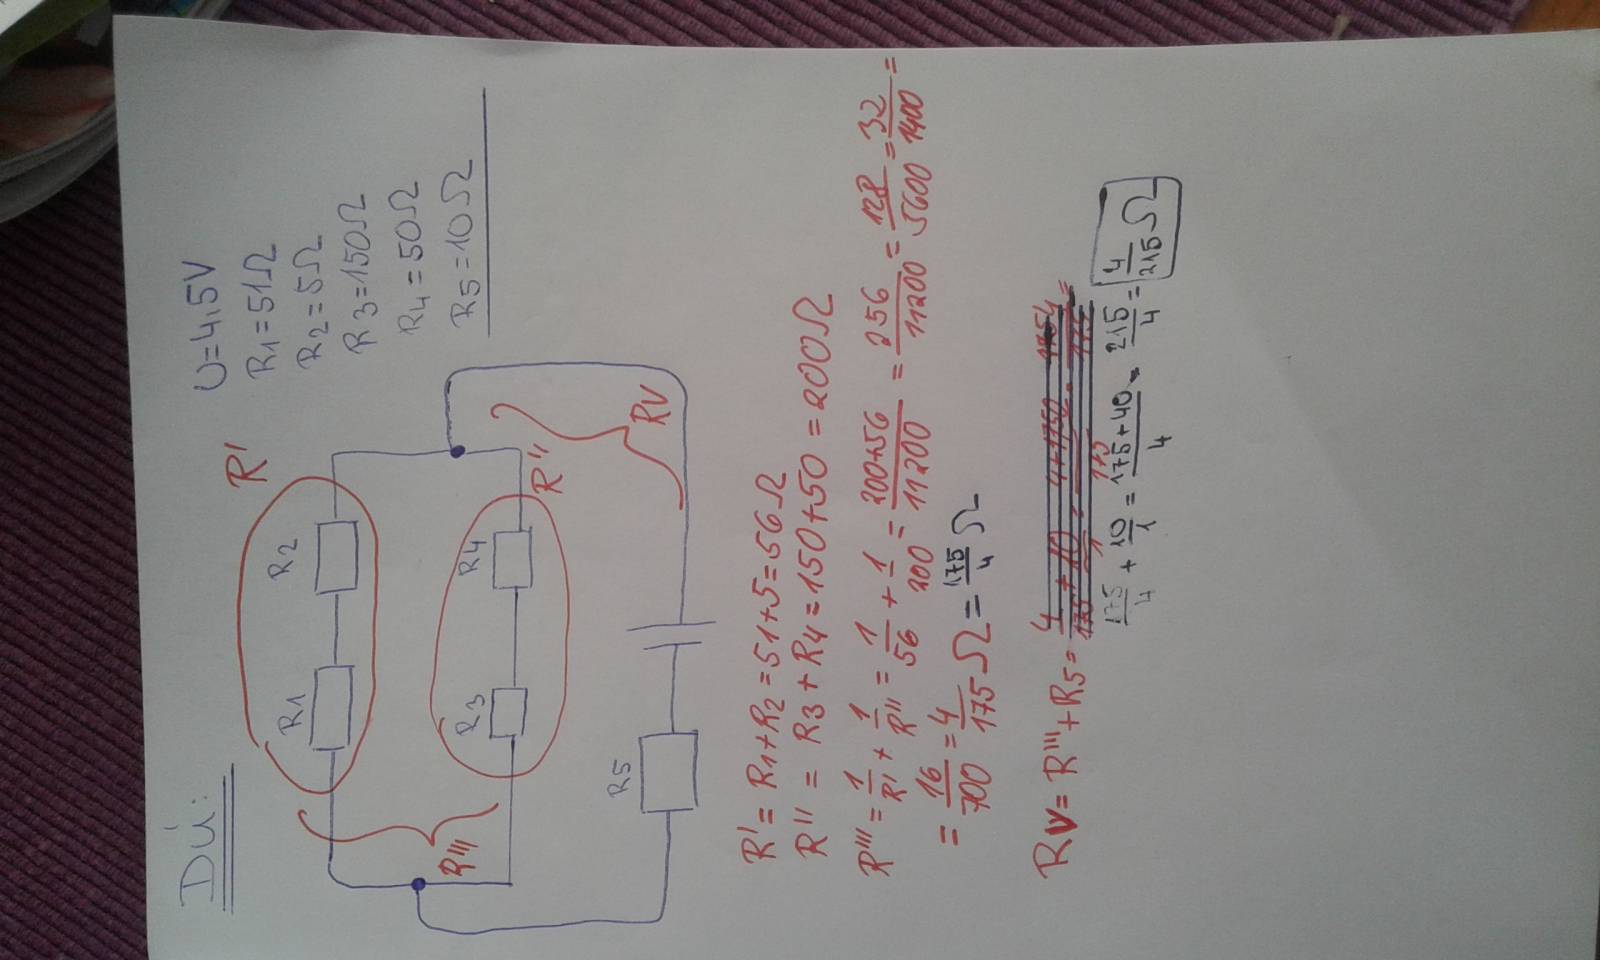 DÚ:
U=4,5V
R1=51Ω
R2=5Ω
R3=150Ω
R4=50Ω
R5=10Ω
R'
R1 R2
R'''
R3 R4
R''
RV
R5
R' = R1+R2 = 51+5 = 56Ω
R'' = R3+R4 = 150+50 = 200Ω
R''' = 1/R' + 1/R'' = 1/56 + 1/200 = 200+56/11200 = 256/11200 = 128/5600 = 32/1400 =
= 16/700 = 4/175 Ω = 175/4 Ω
RV = R''' + R5 =
175/4 + 10/1 = 175+40/4 = 215/4 = 4/215 Ω